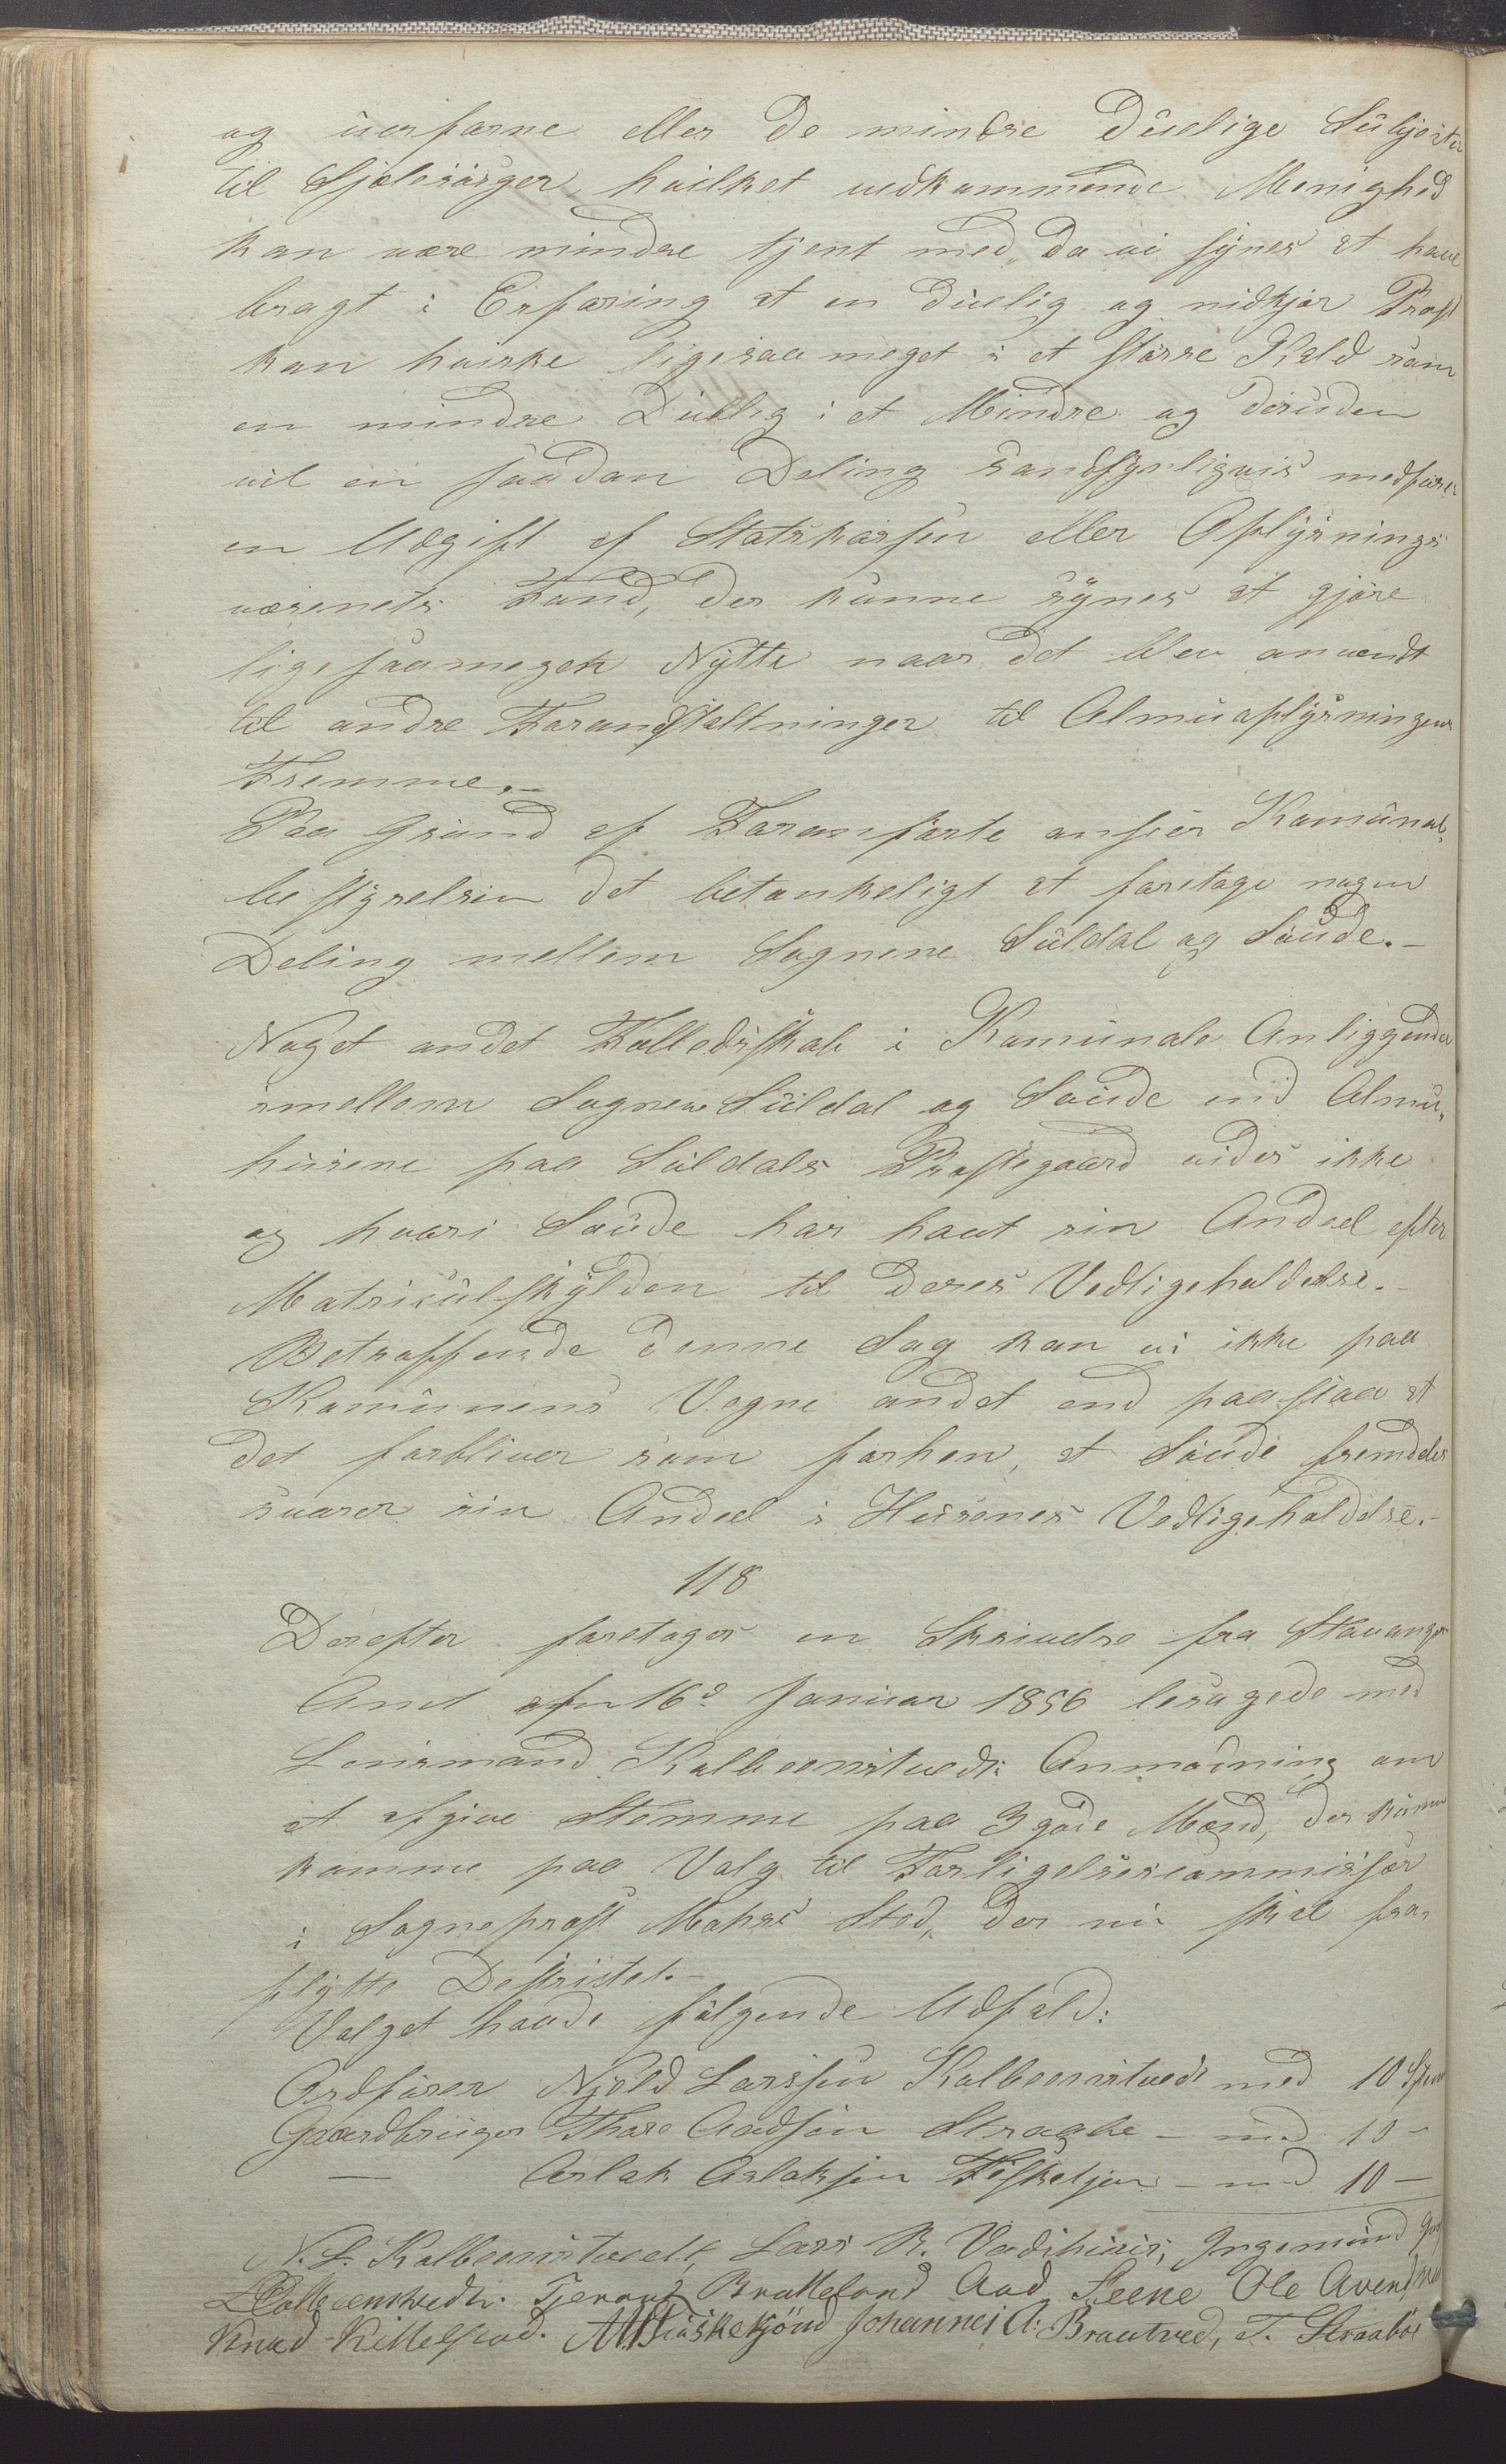 og uerfarne eller de mindre duelige Subjecter
til Sjælesørger, hvilket vedkommende Menighed
kan være mindre tjent med, da vi synes at have
bragt i Erfaring at en duelig og nidkjær Præst
kan virke ligesaa meget i et større Kald som
en mindre Duelig i et Mindre og desuden
vil en saadan Deling sandsynligvis medføre
en Udgift af Statskassen eller Oplysnings
væsenets Fond, der kunne synes at gjøre
ligesaamegen Nytte naar det blev anvendt
til andre Foranstaltninger til Almuoplysningens
Fremme.-
Paa Grund af Foranførte anseer Komunal,
bestyrelsen det betænkeligt at foretage nogen
Deling mellem Sognene Suldal og Saude.-
Noget andet Fælledsskab i Komunale Anliggender
imellem Sognene Suldal og Saude end Almu,
husene paa Suldals Præstegaard vides ikke
og hvori Saude har havt sin Andeel efter
Matriculskylden til deres Vedligeholdelse.-
Betræffende denne Sag kan vi ikke paa
Komunens Vegne andet end paastaa at
det forbliver som forhen, at Saude fremdeles
svarer sin Andeel i Husenes Vedligeholdelse.-
118
Derefter foretoges en Skrivelse fra Stavanger
Amt af 16de Januar 1856 ledsagede med
Lensmand Kolbeenstvedts Anmodning om
at afgive Stemme paa 3 gode Mænd, der kunne
komme paa Valg til Forligelsescommissær
i Sognepræst Mohrs Sted, der nu skal fra,
flytte Destrictet.-
Valget havde følgende Udfald:
Ordfører Njeld Larssen Kolbeenstvedt med 10 Stem
Gaardbruger Thore Aadsøn Straabe - med 10 -
— Aslak Aslaksen Fiskekjøn - med 10 -
N. L. Kolbeenstvedt, Lars R. Vadshuus, Ingemund
L Kolbeenstvedt. Tjerand Bratteland Aad Steene Ole Avend
Knud Kittelsod. AA Fiskekjønd Johannes A: Brautved, T. Straabøe